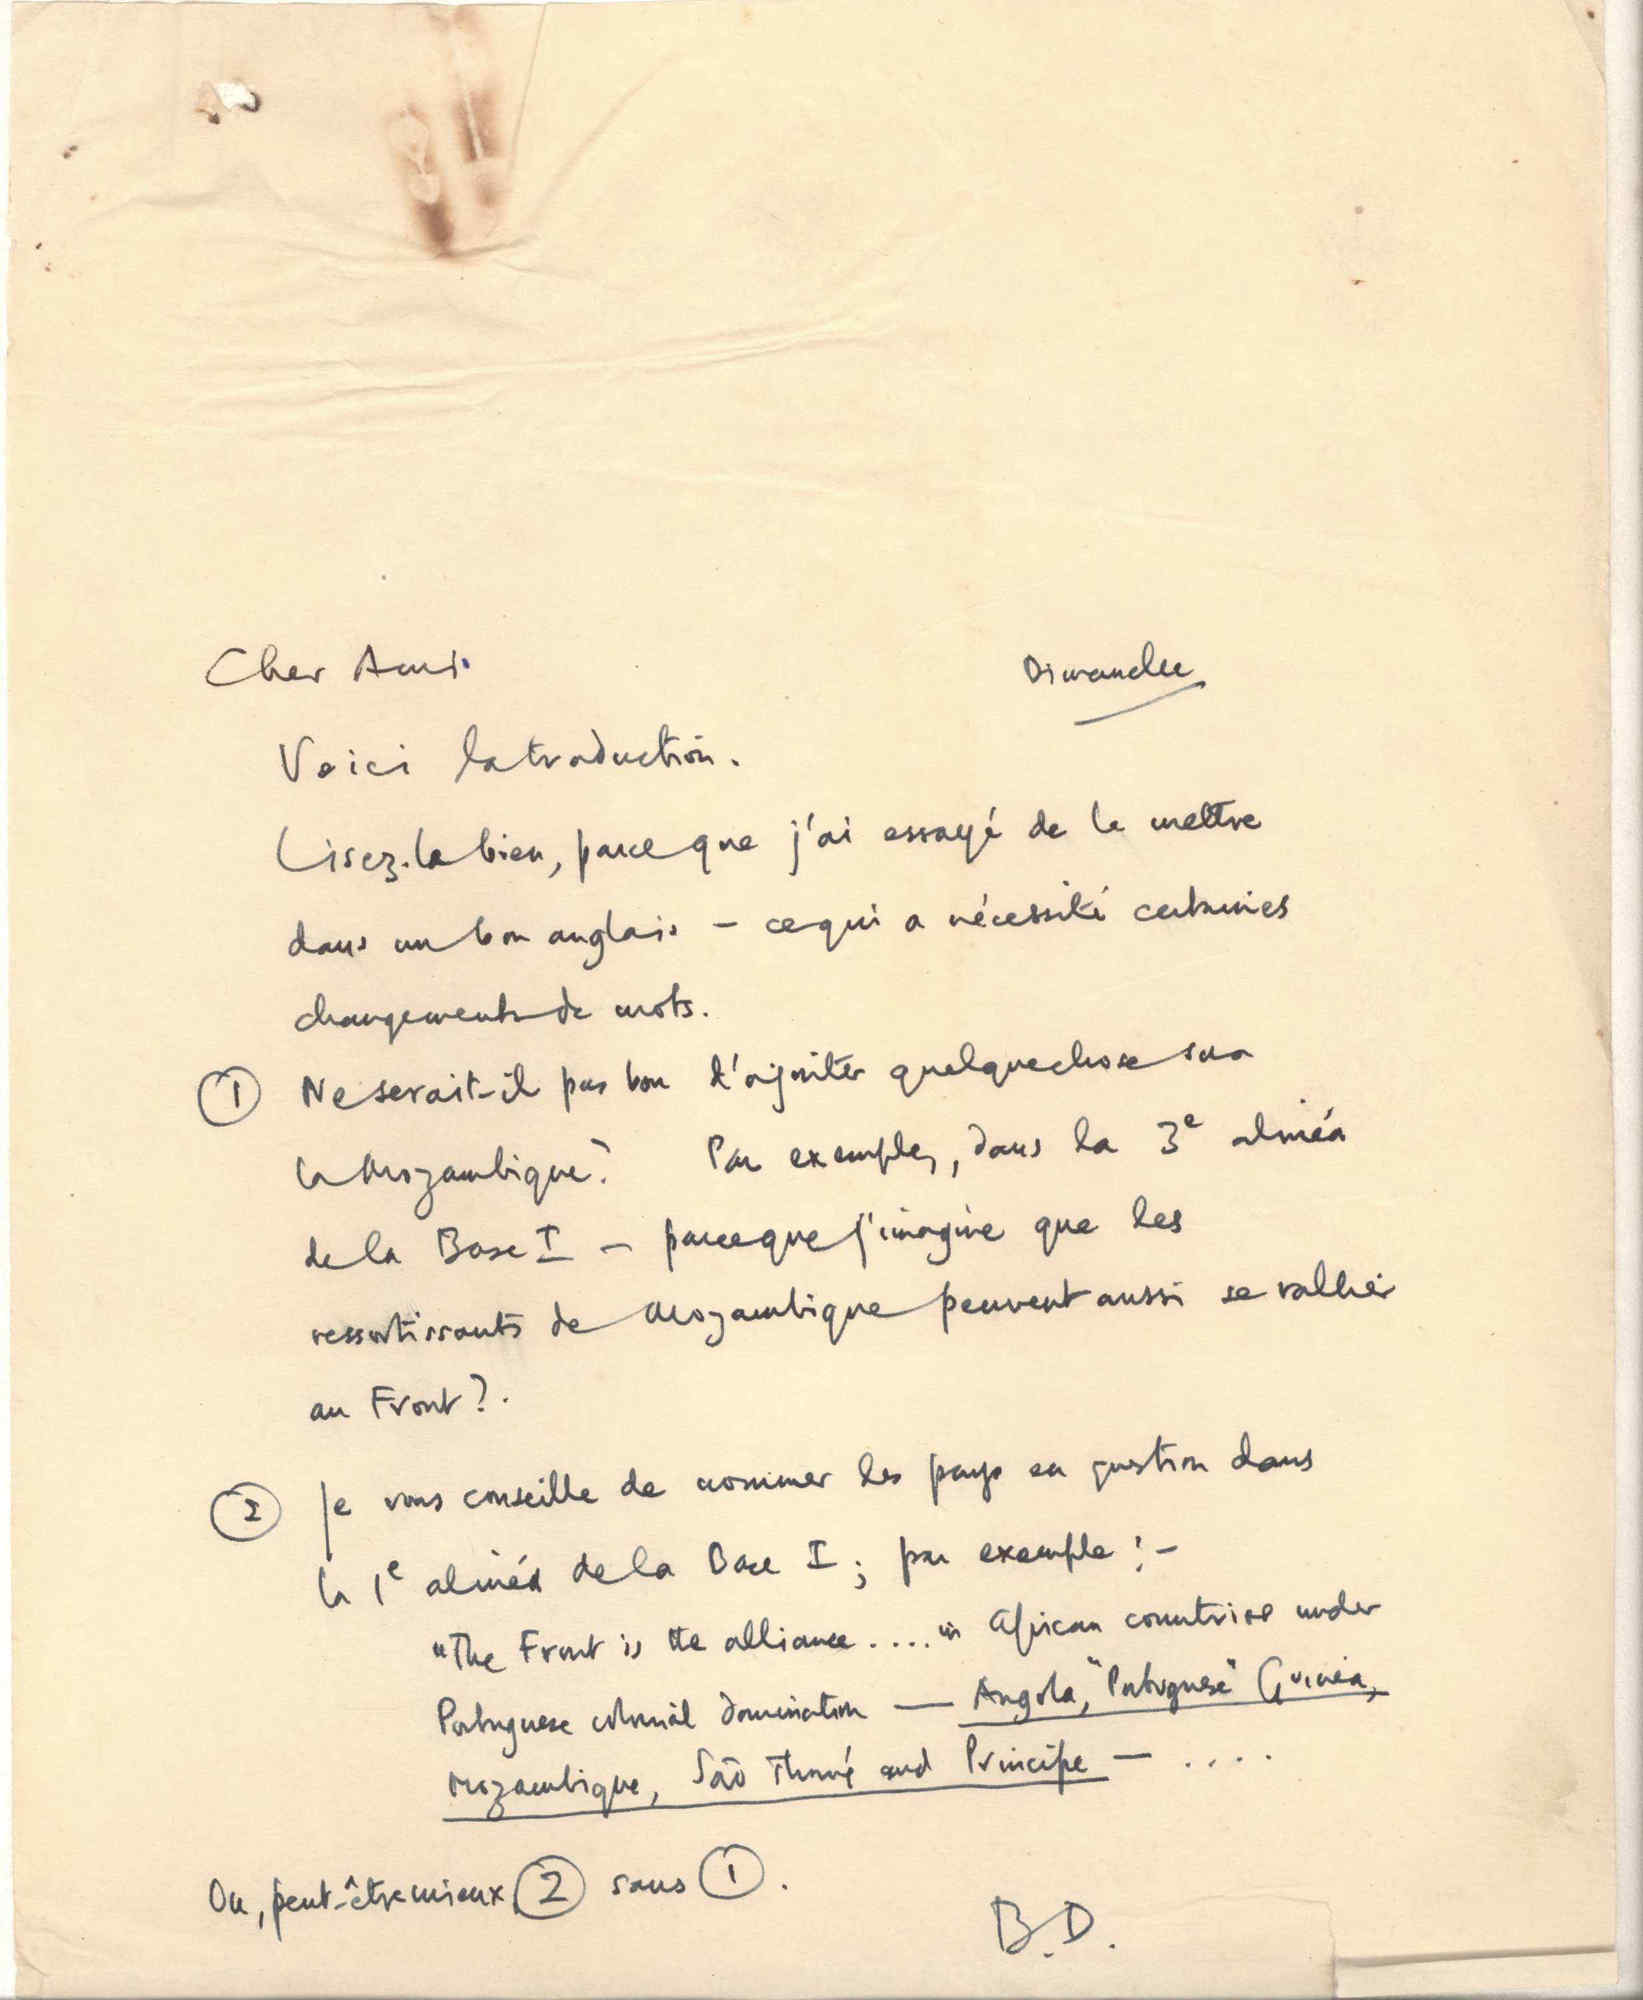 Cher Ami.
Dimanche
Voici la traduction.
Lisez-la bien, parce que j'ai essayé de le mettre
dans un bon anglais – ce qui a nécessité certaines
changements de mots.
① Ne serait-il pas bon d'ajouter quelque chose sur
la Mozambique? Par exemple, dans la 3e alinéa
de la Base I – parce que j'imagine que les
ressortissants de Mozambique peuvent aussi se rallier
au Front?.
② Je vous conseille de nommer les pays en question dans
la 1e alinéa de la Base I ; par exemple :-
"The Front is the alliance .... in African countries under
Portuguese colonial domination — Angola, "Portuguese" Guinea,
Mozambique, São Thomé and Principe — ....
Ou, peut-être mieux, ② sans ①.
B.D.